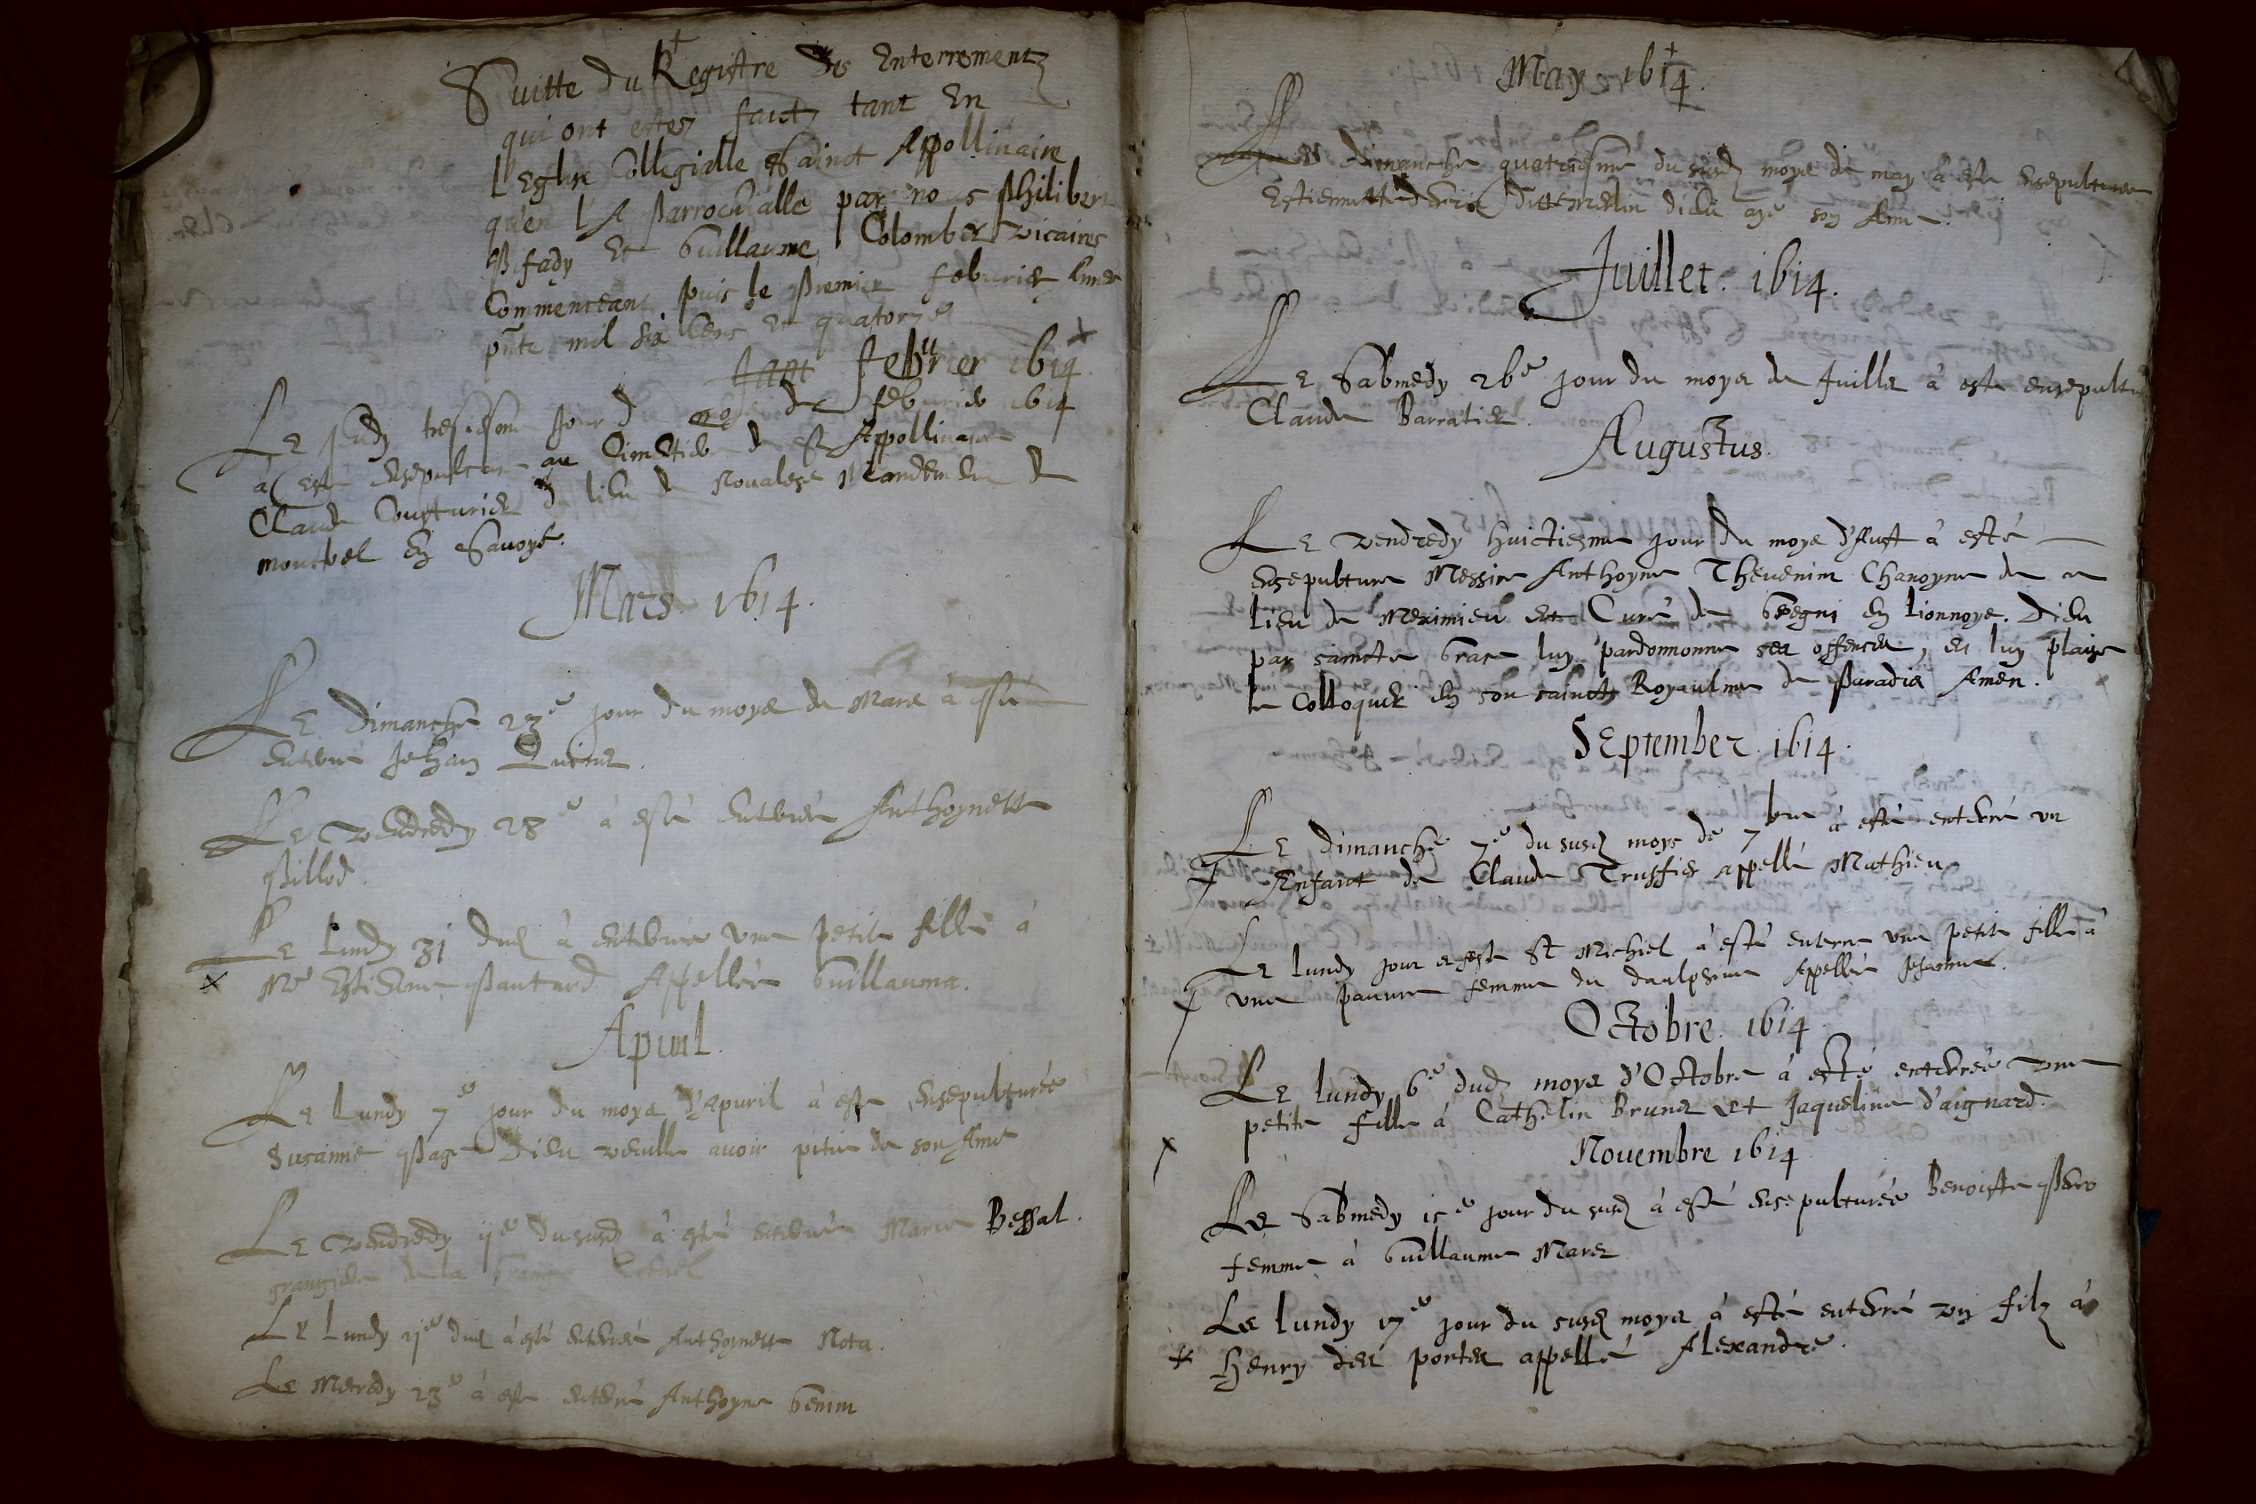 Suitte du Registre des Enterrementz
qui ont estez faictz tant en
l'Eglise Collegialle Sainct Appollinaire
qu'en lA Parrochialle par nos Philibert
Pifady et Guillaume Colomber vicaires
Commenceant puis le Premier feburier Année
pnte mil six cens et quatorze
Feburier 1614
Le jeudy tresiesme jour du moys de feburier 1614
a esté ensepulturé au Cimetiere de St Appollinaire
Claude Cousturier du lieu de Noualese Mandement de
en Sauoye.
Mars. 1614.
Le Dimanche 23e jour du moys de Mars à esté
enterré Jehan
Le Vendredy 28e à esté enterrée Anthoynette
Pillod.
Le Lundy 31 dud à enterrée une petite fille à
Me Estienne Pantard Appellée Guillauma.
Apuril.
Le Lundy 7e jour du moys d'Apuril à esté ensepulturée
Susanne Page Dieu veuille auoir pitié de son Ame
Le Vendredy du susd à esté enterrée Marie Bessal.
grangiere de la Grange
Le Lundy dud à esté enterrée Anthoynette Nota.
Le Mecredy 23e à esté enterré Anthoyne Genin
May 1614.
Le Dimanche quatriesme du susd moys de may à esté ensepulturée
Estiennette ditte Merlin dieu aye son Ame.
Juillet. 1614.
Le Sabmedy 26e jour du moys de Juillet à esté ensepulturé
Claude Barratier.
Augustus.
Le Vendredy huictiesme jour du moys d'Aust à esté
ensepulturé Messire Anthoyne Theuenin Chanoyne de ce
lieu de Meximieu et Curé de Gregni en Lionnoys. Dieu
par saincte Grace luy pardonnonne ses offences, et luy plaise
le Colloquer en son sainct Royaulme de Paradis Amen.
SEptember. 1614.
Le Dimanche 7e du susd moys de 7bre à esté enterré un
Enfant de Claude Truffier appellé Mathieu
Le Lundy jour et feste St Michiel à esté enterré une petite fille à
une pauure femme du daulphiné Appellée Jehanne.
OCtobre. 1614.
Le Lundy 6e dud moys d'Octobre à esté enterrée une
petite fille à Cathelin Brunet et Jaqueline d'aignard.
Nouembre 1614
Le Sabmedy 15e jour du susd à esté ensepulturée Benoiste Pero
femme à Guillaume Maret
Le Lundy 17e jour du susd moys à esté enterré un filz à
Henry des portes appellé Alexandre.